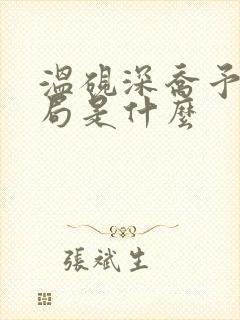 溫硯深喬予
局是什麼
張斌生